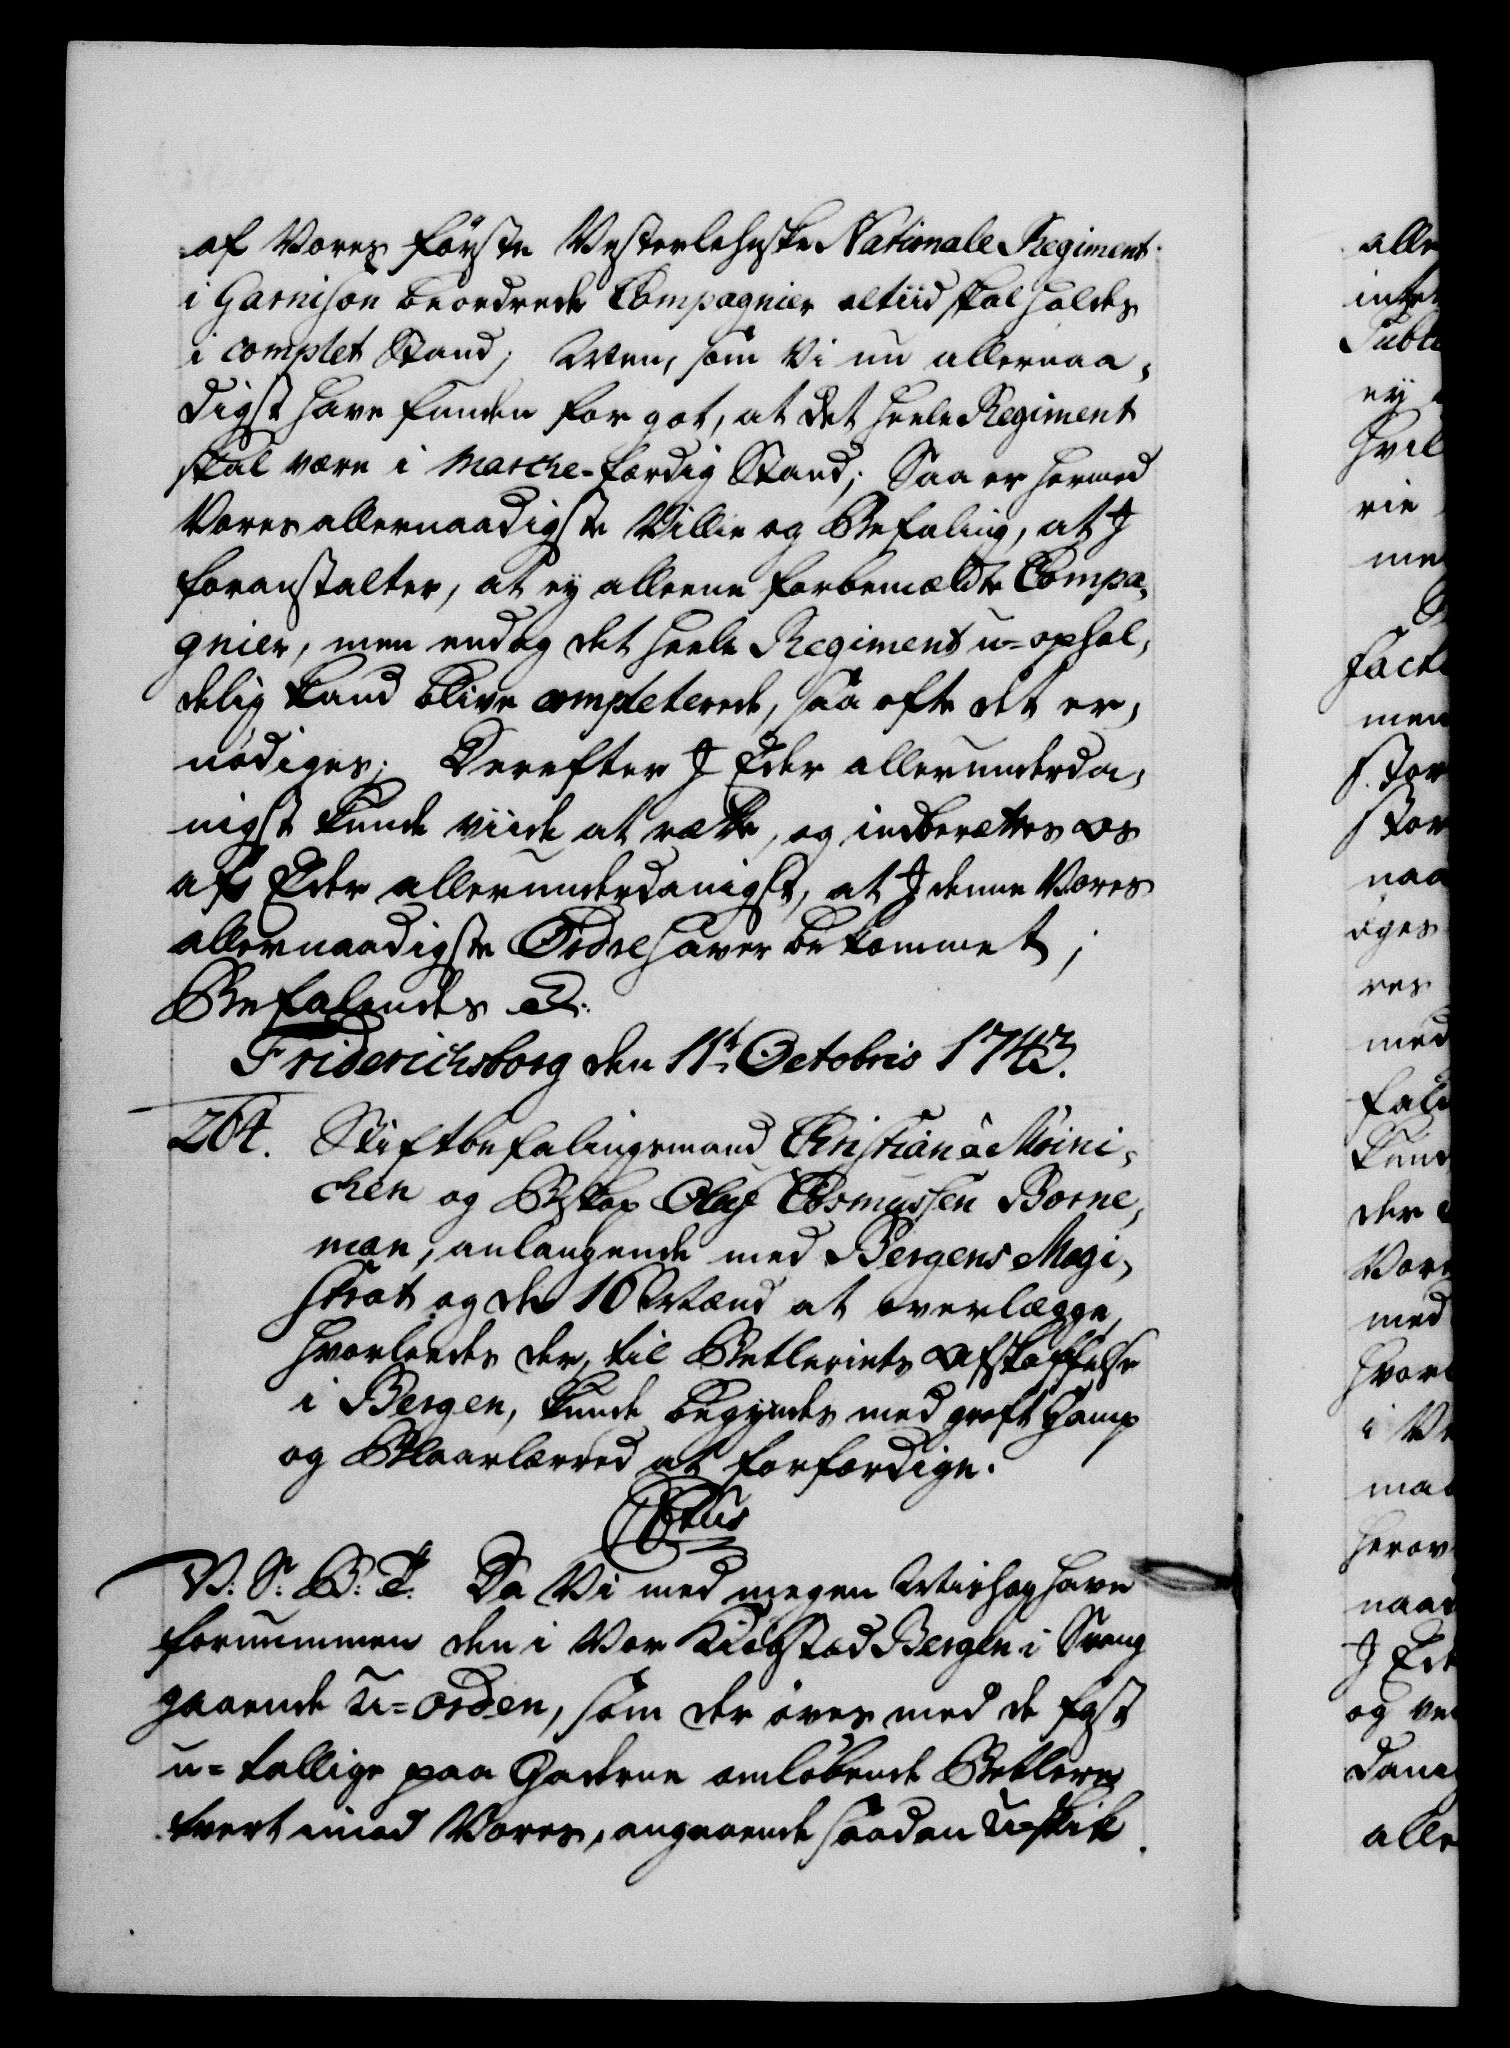 af Vores første Vesterlehnske Nationale Regiment
i Garnison beordrede Compagnier altiid skal holdes
i complet Stand; Men, som Vi nu allernaa-
digst have funden for got, at det heele Regiment
skal være i Marche-færdig Stand; Saa er hermed
Vores allernaadigste Villie og Befaling, at I
foranstalter, at ey alleene forbemældte Compa-
gnier, men endog det heele Regiment u-ophol-
delig kand blive completerede, saa ofte det er-
nødiges; Derefter I Eder allerunderda-
nigst kunde viide at rætte, og indberættes os
af Eder allerunderdanigst, at I denne Vores
allernaadigste Ordre haver bekommet;
Befalendes &c:
Friderichsborg den 11t Octobris 1743.
264. Stiftbefalingsmand Christian à Möini-
chen og Biskop Oluf Cosmussen Borne-
man, anlangende med Bergens Magi-
strat og de 16 Mænd at overlægge,
hvorledes der, til Betleriets Afskaffelse
i Bergen, kunde begyndes med groft Hamp
og Blaarlærred at forfærdige.
CRus
V. S. B. T. Da Vi med megen Mishag have
fornummen den i Vor Kiøbstad Bergen i Svang
gaaende U-orden, som der øves med de fast
u-tallige paa Gaderne omløbende Betlere
tvert imod Vores, angaaende saadan U-skik